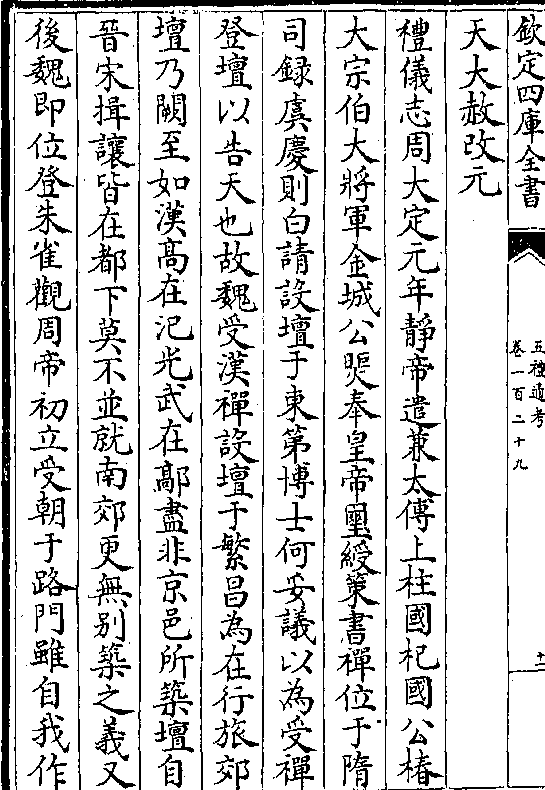 欽定四庫全書
五禮通考
卷一百二十九
十二
天大赦改元
禮儀志周大定元年靜帝遣兼太傅上柱國杞國公椿
大宗伯大將軍金城公煚奉皇帝璽綬策書禪位于隋
司録虞慶則白請設壇于東第博士何妥議以為受禪
登壇以告天也故魏受漢禪設壇于繁昌為在行旅郊
壇乃闕至如漢髙在汜光武在鄗盡非京邑所築壇自
晉宋揖讓皆在都下莫不並就南郊更無别築之義又
後魏即位登朱雀觀周帝初立受朝于路門雖自我作